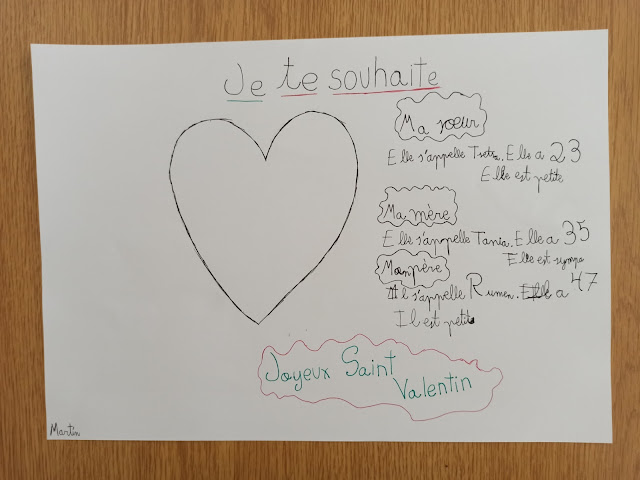 Je te souhaite
Ma sœur
Elle s'appelle Tseta. Elle a 23
Elle est petite
Ma mère
Elle s'appelle Tania. Elle a 35
Elle est sympa
Mon père
Il s'appelle Rumen. a 47
Il est petit
Joyeux Saint
Valentin
Martin